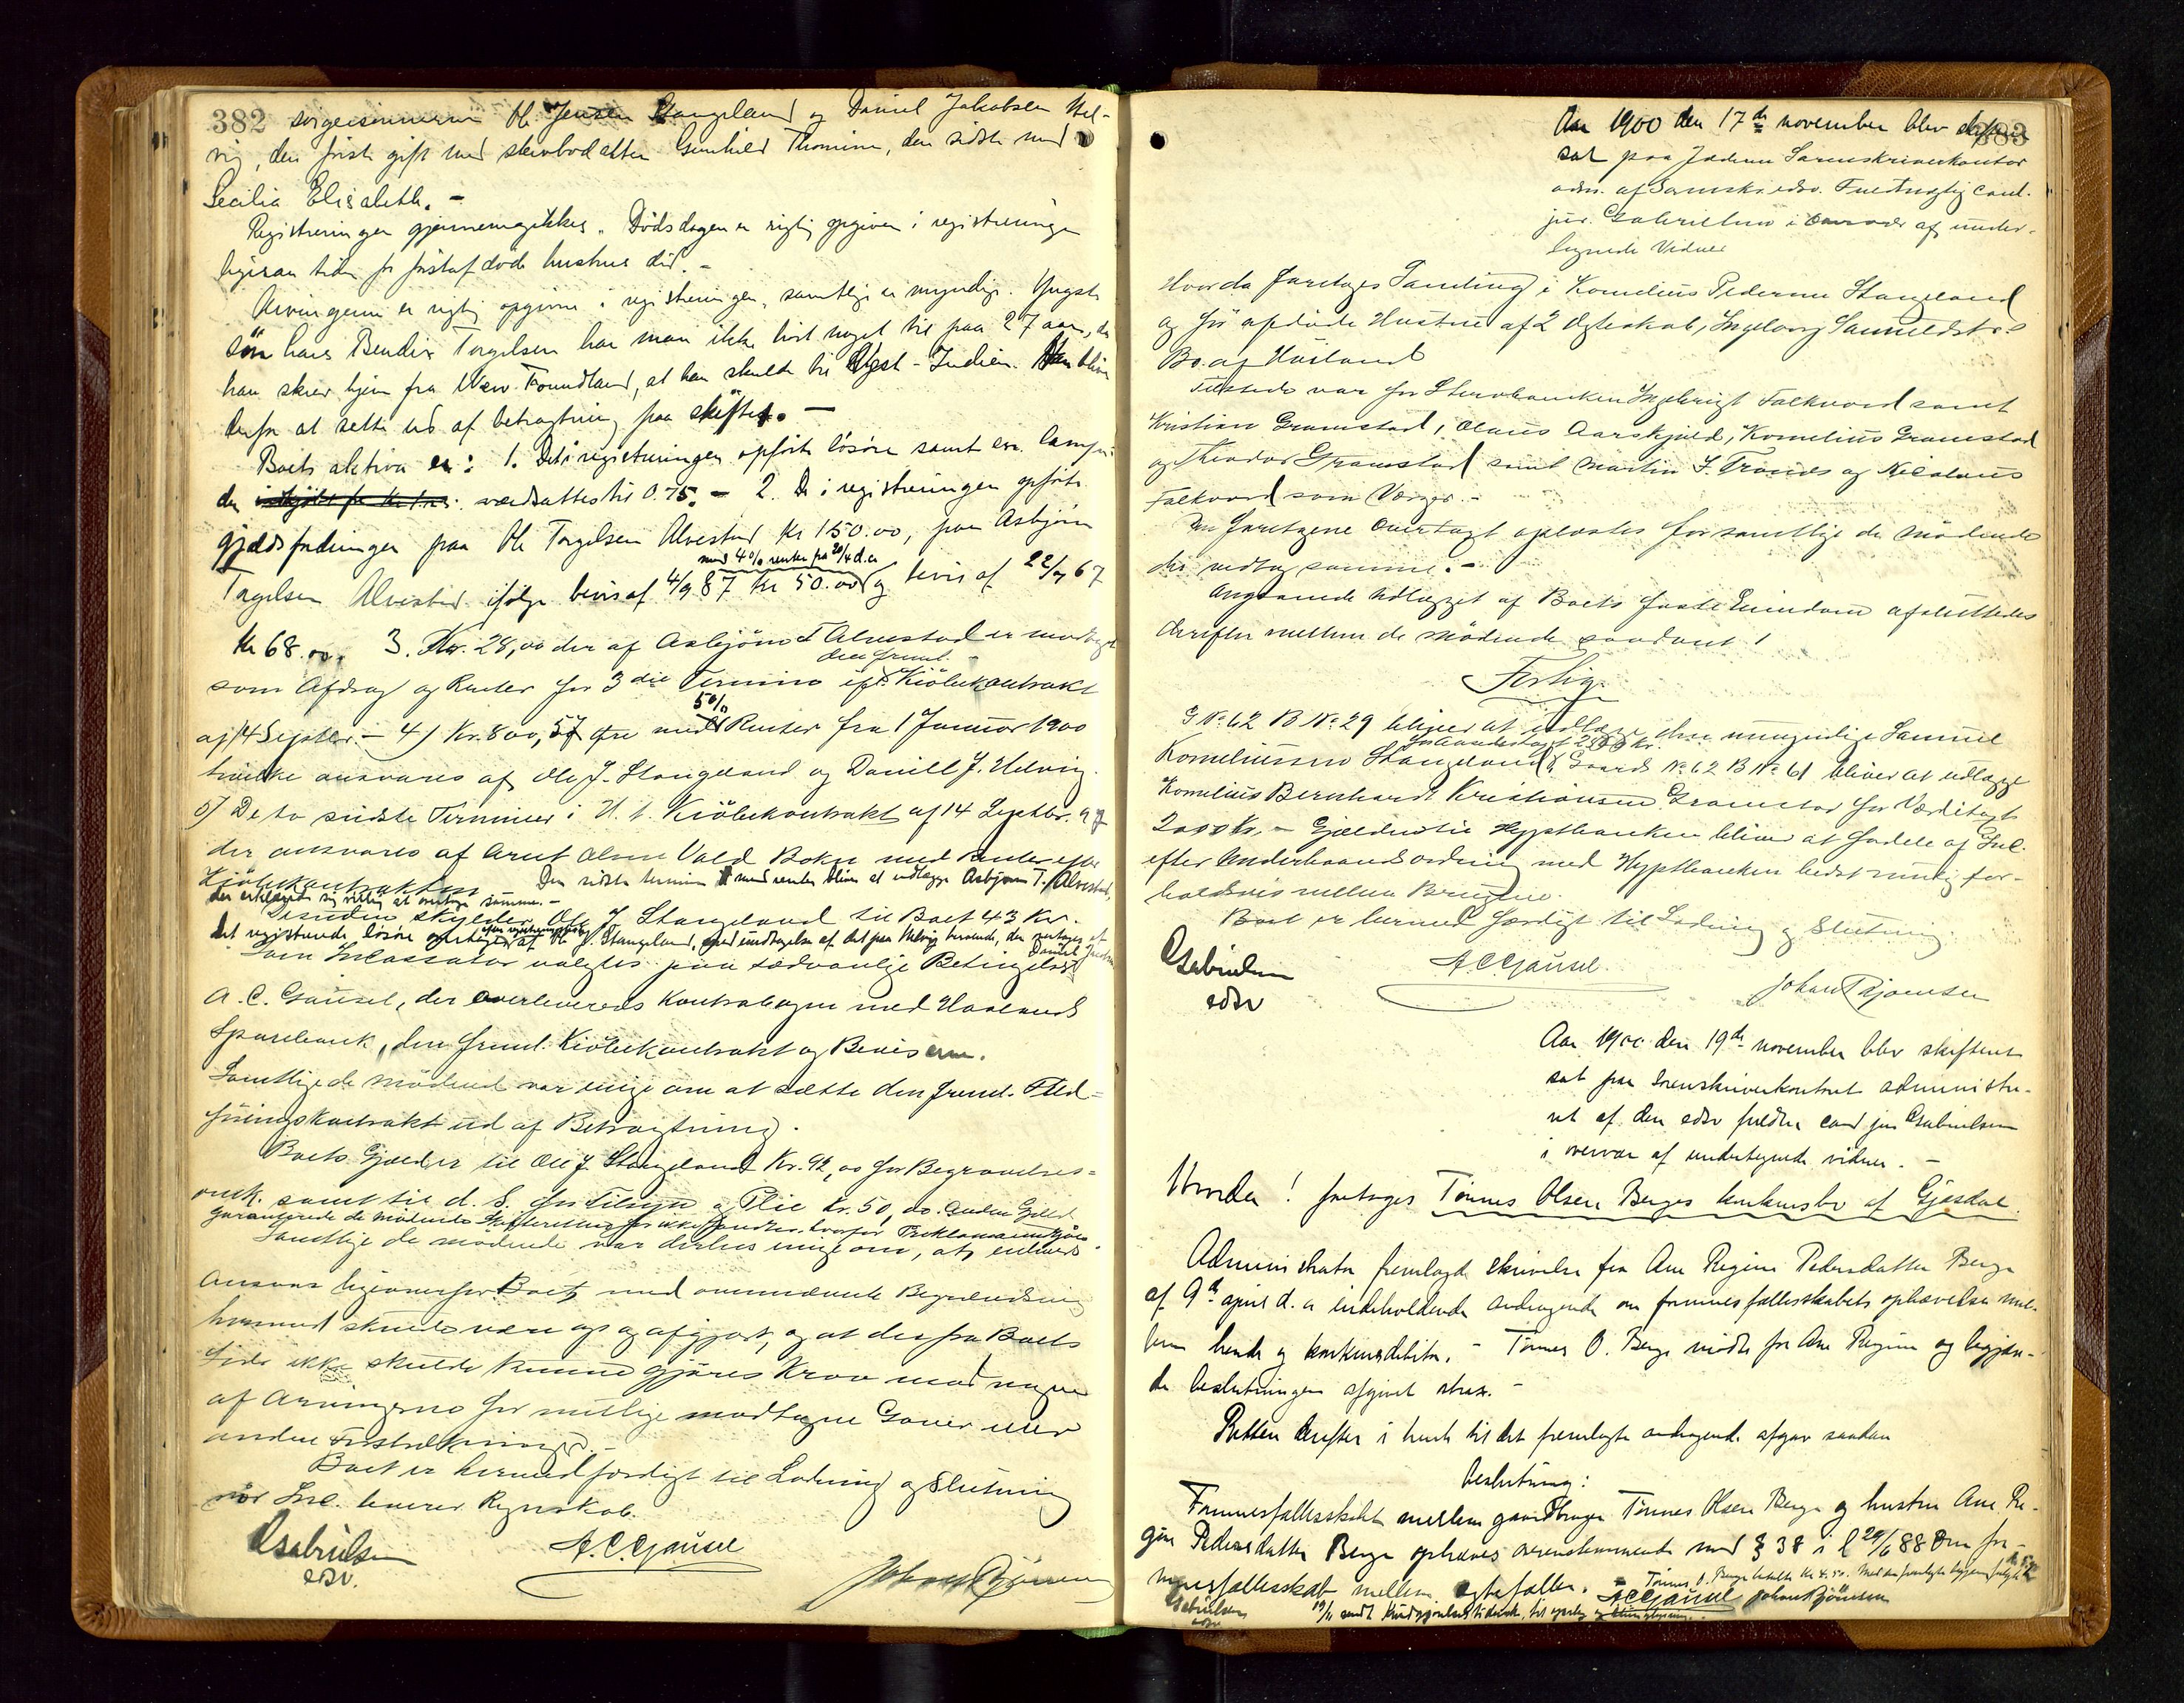 382
svigersønnerne Ole Jensen Stangeland og Daniel Jakobsen Hel-
vig, den første gift med skevbodatter Gunhild Thomine, den sidste med
Secilia Elisabeth. -
Registreringen gjennemgikkes. Dødsdagen er rigtig opgiven i registreringen
ligesaa tiden for førstafdøde hustrus død. -
Arvingerne er rigtig opgivne i registreringen, samtlige er myndige. Yngste
søn hans Bendix Torgelsen har man ikke hørt noget til paa 27 aar, da
han skrev hjem fra New-Foundland, at han skulde til Vest-Indien. Han bliver
derfor at sette ud af betragtning paa skiftet. -
Boets aktiva er: 1. Det i registreringen opførte løsøre samt en lampe
der værdsattes til 0.75. - 2. De i registreringen opførte
gjældsfordringer paa Ole Torgelsen Alvestad Kr 150.00, paa Asbjørn
med 4% renter fra 20/4 d.a
Torgelsen Alvestad ifølge bevis af 4/9 87 Kr 50.00 og bevis af 22/7 67
Kr 68.00. 3. Kr. 28,00 der af Asbjørn T Alvestad er modtaget
den freml.
som Afdrag og Renter for 3die Termin ifl. Kjøbekontrakt
5%
af 14 Septbr. - 4) Kr. 800,57 Øre med Renter fra 1 Januar 1900
hvilke ansvares af Ole J. Stangeland og Daniel J. Helvig.
5) De to sidste Terminer i H. t. Kjøbekontrakt af 14 Septbr. 97
der ansvares af Arnt Olsen Vold Bokn med Renter efter
Kjøbekontrakten. Den sidste termin med renter bliver at udlægge Asbjørn T. Alvestad,
der erklærede sig villig at overtage samme. -
Desuden skylder Ole J. Stangeland til Boet 43 Kr.
Det registrerede løsøre overtages af Ole J. Stangeland, med undtagelse af det paa Helvig berørende, der overtages af
Daniel Jacobsen
Som Inkassator valgtes paa sædvanlige Betingelser
A. C. Gausel, der overleveres Kontrabogen med Haalands
Sparebank, den freml. Kjøbekontrakt og Beviserne.
Samtlige de mødende var enige om at sætte den freml. Fled-
føringskontrakt ud af Betragtning.
Boets Gjæld er til Ole J. Stangeland Kr. 92,00 for Begravelses-
omk. samt til d. S. for Tilsyn og Pleie Kr. 50,00. Anden Gjæld
garanterede de mødende Skifteretten for ikke findes, hvorfor Proklama undgaaes
Samtlige de mødende var derhos enige om, at enhvers
Ansvar ligeoverfor Boet med ovennævnte Begrændsning
hermed skulde være op og afgjort, og at der fra Boets
Side ikke skulde kunne gjøres Krav mod nogen
af Arvingerne for mulige modtagne Gaver eller
anden Forstrækning. -
Boet er hermed færdigt til Lodning og Slutning
naar Ink. leverer Regnskab.
Gabrielsen
edsv.
A. C. Gausel
Johan Bjørnsen
383
Aar 1900 den 17de november blev skifteret
sat paa Jæderen Sorenskriverkontor
adm. af Sorenskr. edsv. Fuldmægtig cand.
jur. Gabrielsen i Overvær af under-
tegnede Vidner
Hvorda foretoges Samling i Kornelius Pedersen Stangeland
og før afdøde Hustru af 2 Ægteskab, Ingeborg Samuelsdtrs
Bo af Høiland
Tilstede var for Stervbanken Ingebrigt Falkvord samt
Kristian Gramstad, Claus Aarskjold, Kornelius Gramstad
og Theodor Gramstad samt Martin S. Tronds og Nicolaus
Falkvord som Værger. -
Den foretagne Overtagt oplæstes for samtlige de mødende
der vedtog samme. -
Angaaende Udlægget af Boets faste Eiendom afsluttedes
derefter mellem de mødende saadant
Forlig
G No 62 B No 29 bliver at udlægge den umyndige Samuel
for Værditagt 2500 Kr.
Korneliussen Stangeland, Gaards No 62 B No 61 bliver at udlægge
Kornelius Bernhardt Kristiansen Gramstad for Værditagt
2000 Kr. - Gjælden til Hypthbanken bliver at fordele af Ink.
efter Underhaandsordning med Hypthbanken bedst mulig for-
holdsvis mellem Brugene.
Boet er hermed færdigt til Lodning og Slutning.
Gabrielsen
edsv
A. C. Gausel.
Johan Bjørnsen
Aar 1900 den 19de november blev skifteret
sat paa Sorenskriverkontoret administre-
ret af den edsv fuldm. cand jur Gabrielsen
i overvær af undertegnede vidner. -
Hvorda! foretoges Tønnes Olsen Berges konkursbo af Gjesdal.
Administrator fremlagde skrivelse fra Ane Regine Pedersdatter Berge
af 9de april d. a indeholdende andragende om formuesfællesskabets ophævelse mel-
lem hende og konkursdebitor. - Tønnes O. Berge mødte for Ane Regine og begjær-
de beslutningen afgivet strax. -
Retten derefter i henh til det fremlagte andragende afgav saadan
beslutning:
Formuesfællesskabet mellem gaardbruger Tønnes Olsen Berge og hustru Ane Re-
gine Pedersdatter Berge ophæves overensstemmende med § 38 i l 29/6 88 Om for-
muesfællesskab mellem ægtefæller. - Tønnes O. Berge betalte Kr 4.50.
Gabrielsen
edsv
A C Gausel Johan Bjørnsen
19/11 sendt Kundgjørelsestidende